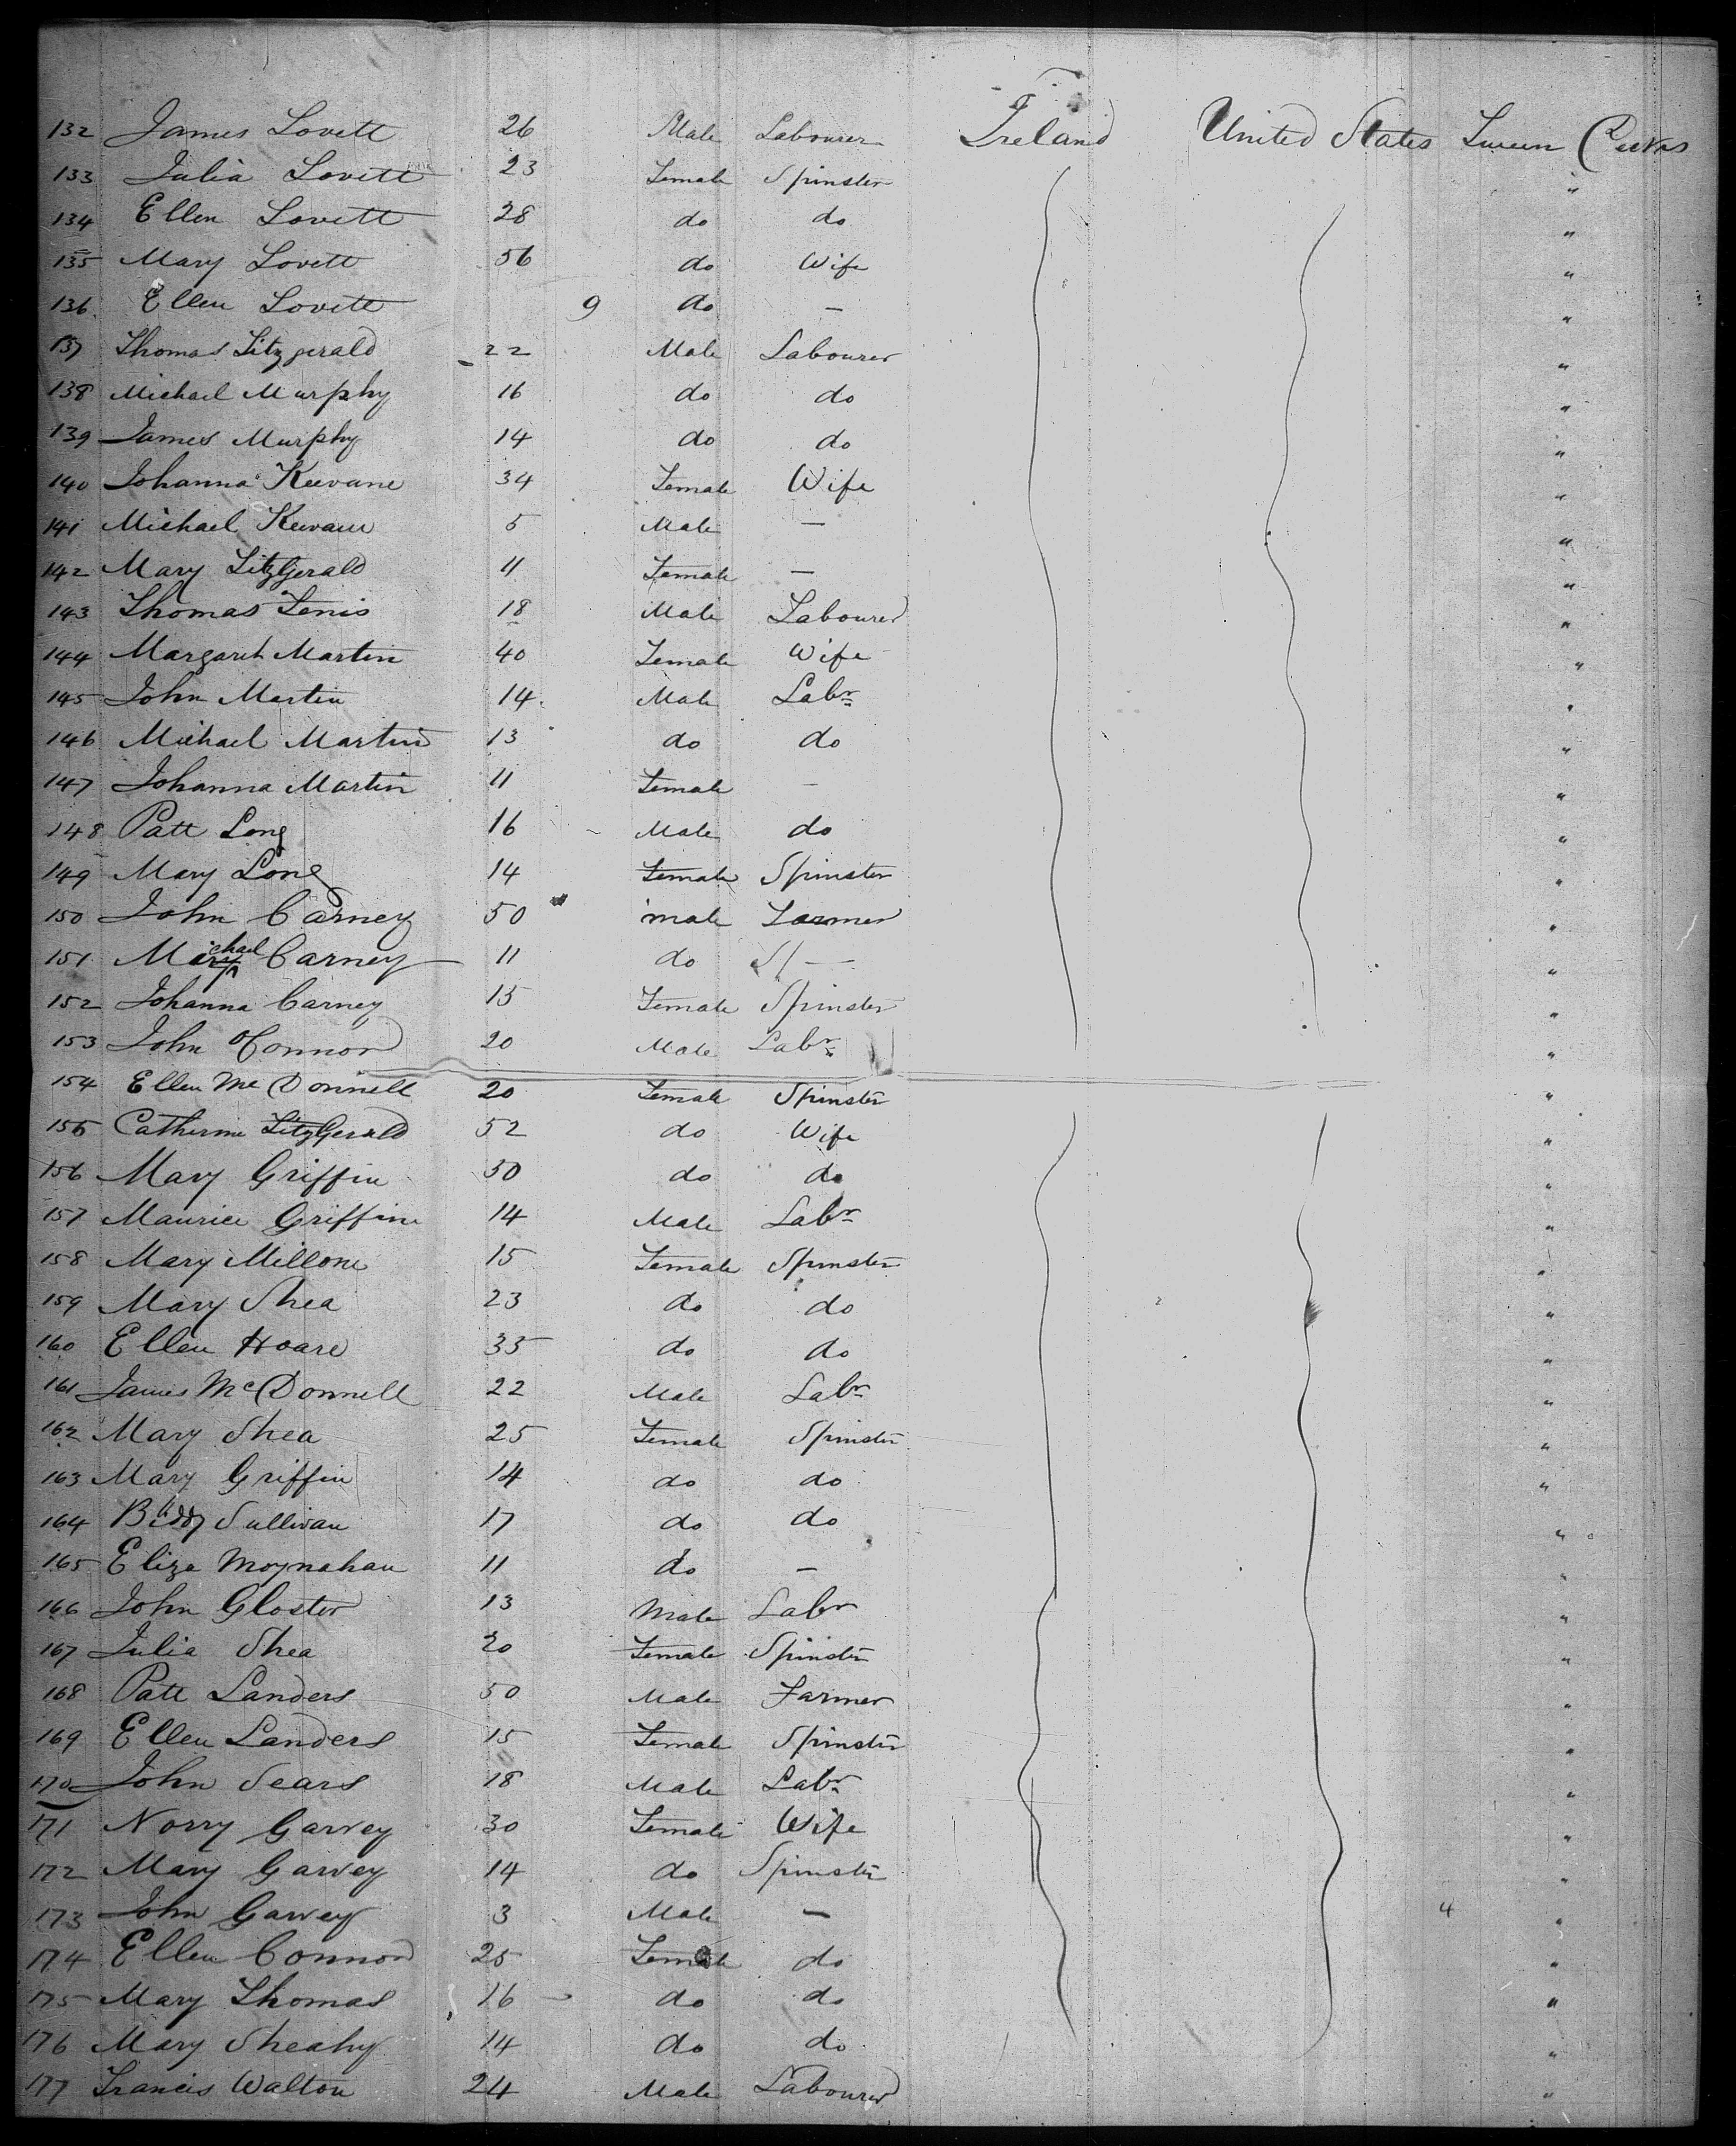 132 James Lovett 26 Male Labourer Ireland United States Tween Decks
133 Julia Lovett 23 Female Spinster "
134 Ellen Lovett 28 do do "
135 Mary Lovett 56 do Wife "
136 Ellen Lovett 9 do — "
137 Thomas Fitzgerald 22 Male Labourer "
138 Michael Murphy 16 do do "
139 James Murphy 14 do do "
140 Johanna Keevane 34 Female Wife "
141 Michael Keevane 5 Male — "
142 Mary FitzGerald 11 Female — "
143 Thomas Fenis 18 Male Labourer "
144 Margaret Martin 40 Female Wife "
145 John Martin 14 Male Labr "
146 Michael Martin 13 do do "
147 Johanna Martin 11 Female — "
148 Patt Long 16 Male do "
149 Mary Long 14 Female Spinster "
150 John Carney 50 male Farmer "
151 Michael Carney 11 do — "
152 Johanna Carney 15 Female Spinster "
153 John O'Connor 20 Male Labr "
154 Ellen Mc Donnell 20 Female Spinster "
155 Catherine FitzGerald 52 do Wife "
156 Mary Griffin 50 do do "
157 Maurice Griffin 14 Male Labr "
158 Mary Millone 15 Female Spinster "
159 Mary Shea 23 do do "
160 Ellen Hoare 35 do do "
161 James McDonnell 22 Male Labr "
162 Mary Shea 25 Female Spinster "
163 Mary Griffin 14 do do "
164 Biddy Sullivan 17 do do "
165 Eliza Moynahan 11 do — "
166 John Gloster 13 Male Labr "
167 Julia Shea 20 Female Spinster "
168 Patt Landers 50 Male Farmer "
169 Ellen Landers 15 Female Spinster "
170 John Sears 18 Male Labr "
171 Norry Garvey 30 Female Wife "
172 Mary Garvey 14 do Spinster "
173 John Garvey 3 Male — 4 "
174 Ellen Connor 25 Female do "
175 Mary Thomas 16 do do "
176 Mary Sheahy 14 do do "
177 Francis Walton 24 Male Labourer "